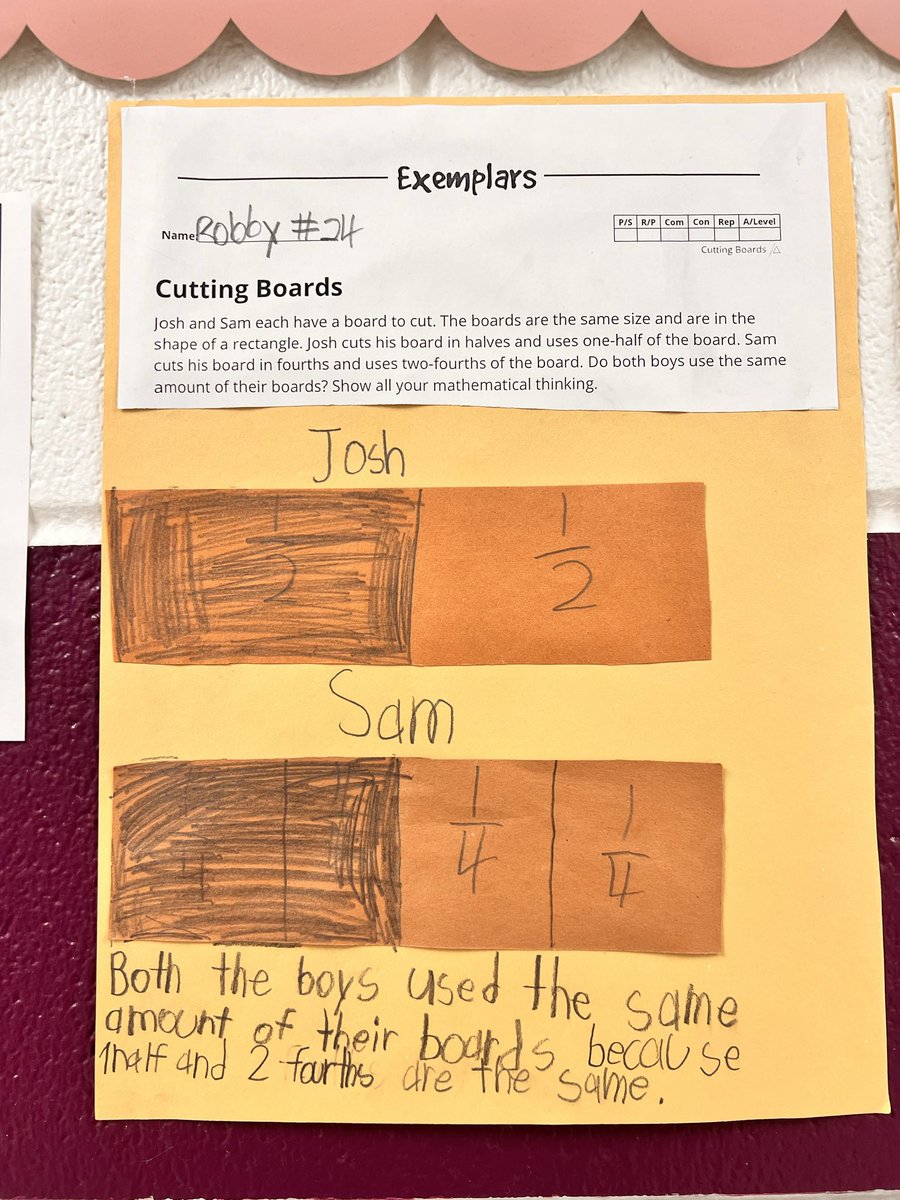 Exemplars
Name Robby #24
P/S R/P Com Con Rep A/Level
Cutting Boards
Cutting Boards
Josh and Sam each have a board to cut. The boards are the same size and are in the
shape of a rectangle. Josh cuts his board in halves and uses one-half of the board. Sam
cuts his board in fourths and uses two-fourths of the board. Do both boys use the same
amount of their boards? Show all your mathematical thinking.
Josh
1/2 1/2
Sam
4 1/4 1/4
Both the boys used the same
amount of their boards because
1half and 2 fourths are the same.